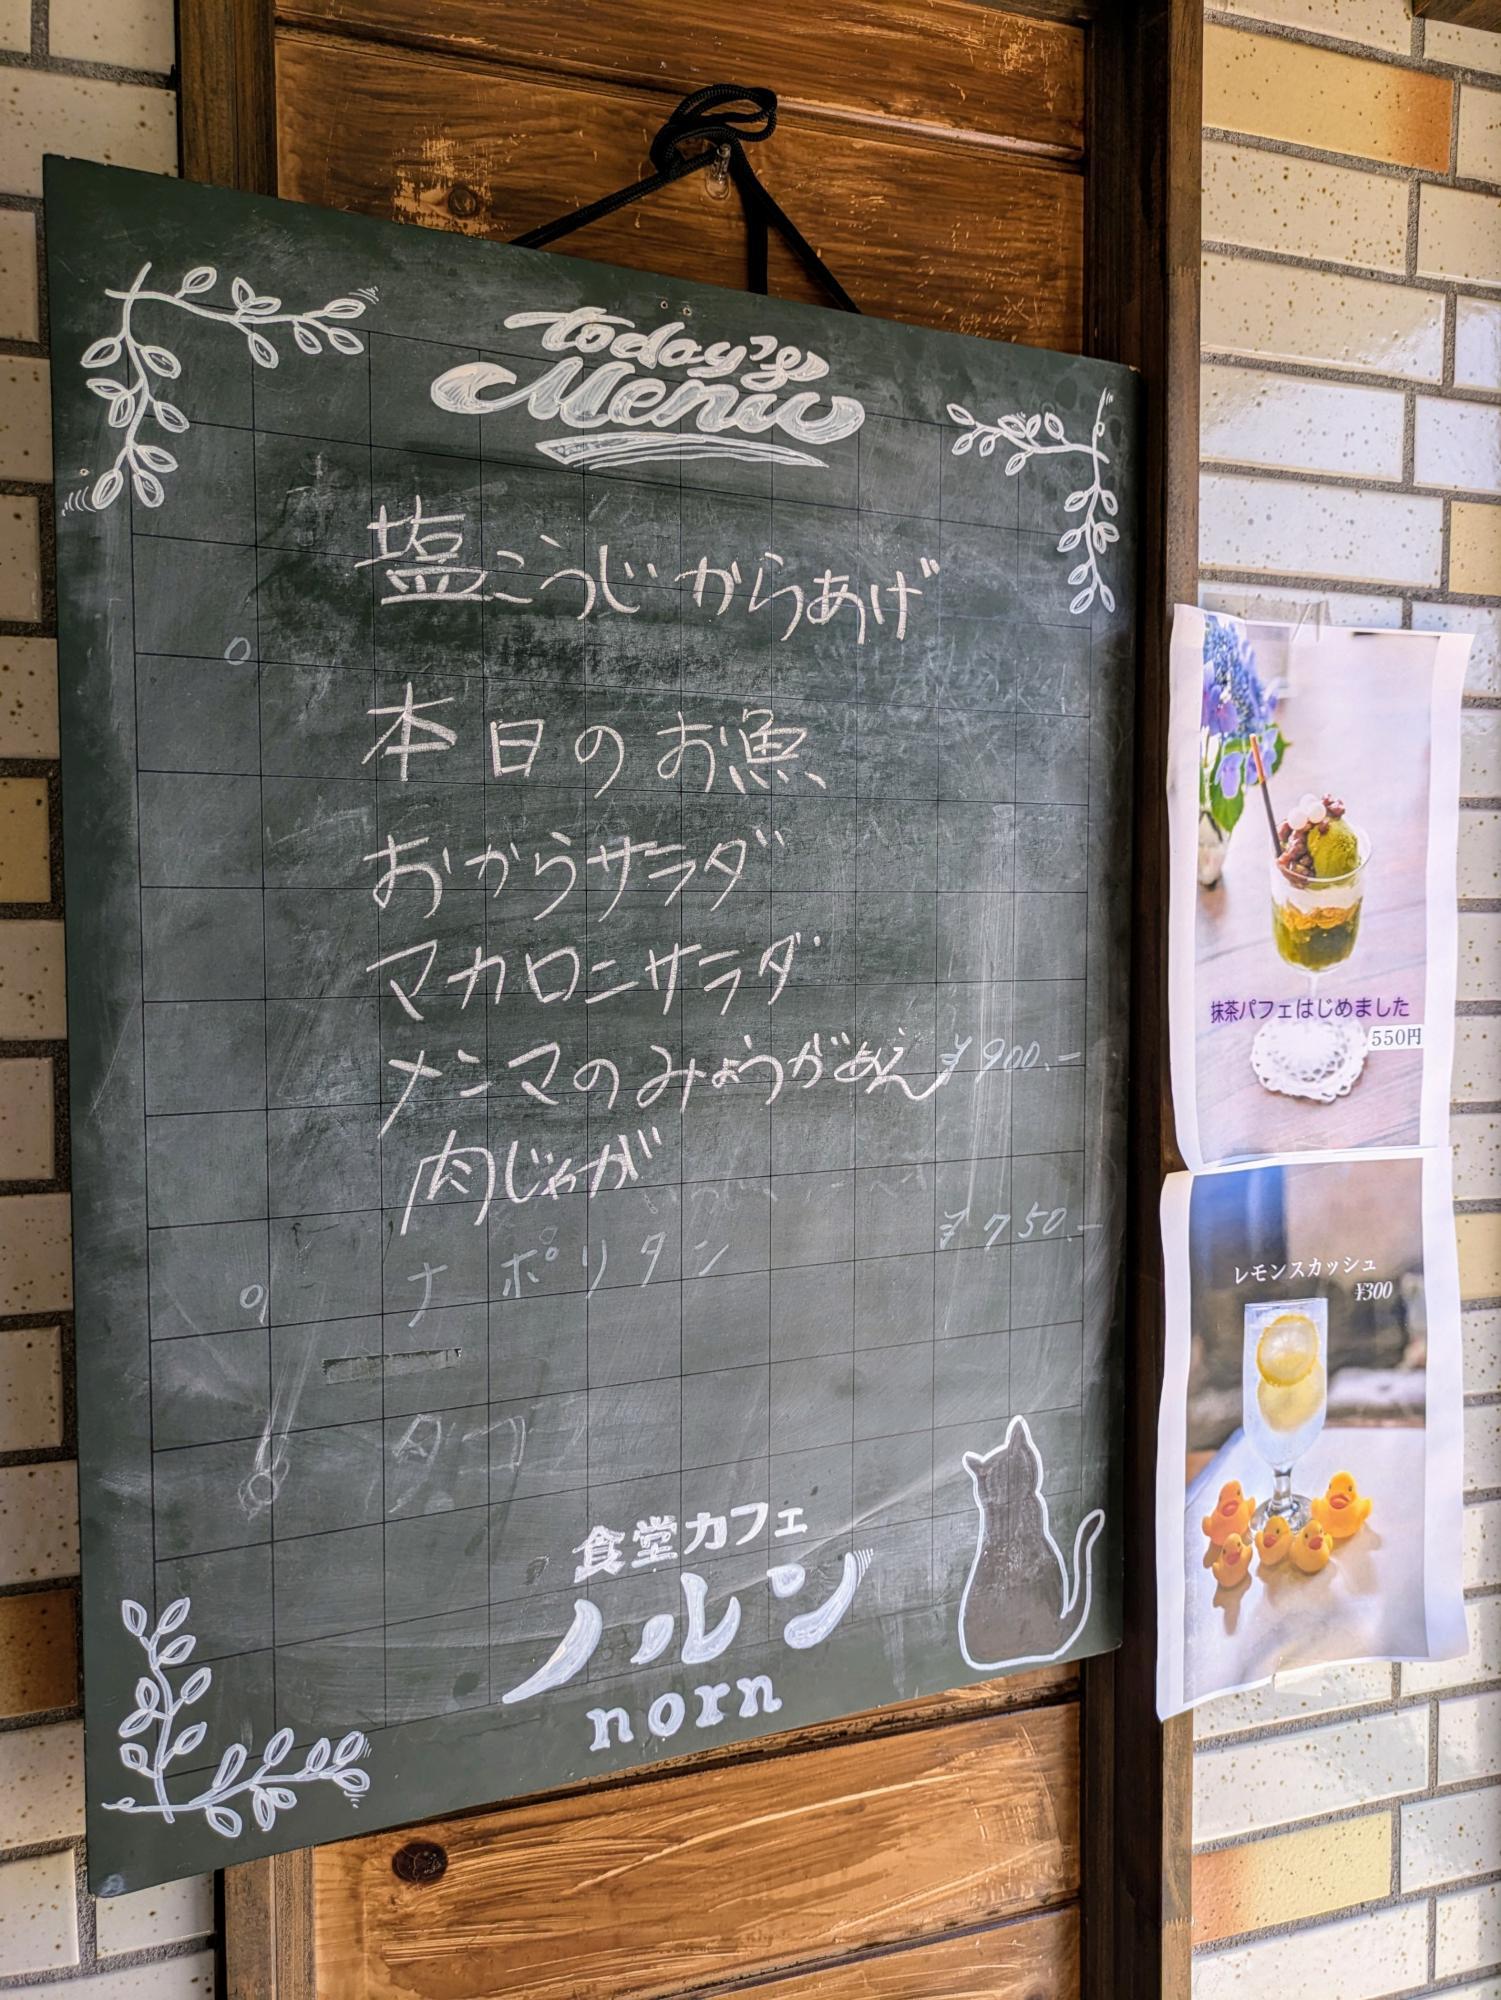 today's
Menu
塩こうじからあげ
本日のお魚
おからサラダ
マカロニサラダ
メンマのみょうがあえ ¥900.-
肉じゃが
ナポリタン ¥750.-
タコ
食堂カフェ
ノルン
norn
抹茶パフェはじめました
550円
レモンスカッシュ
¥300